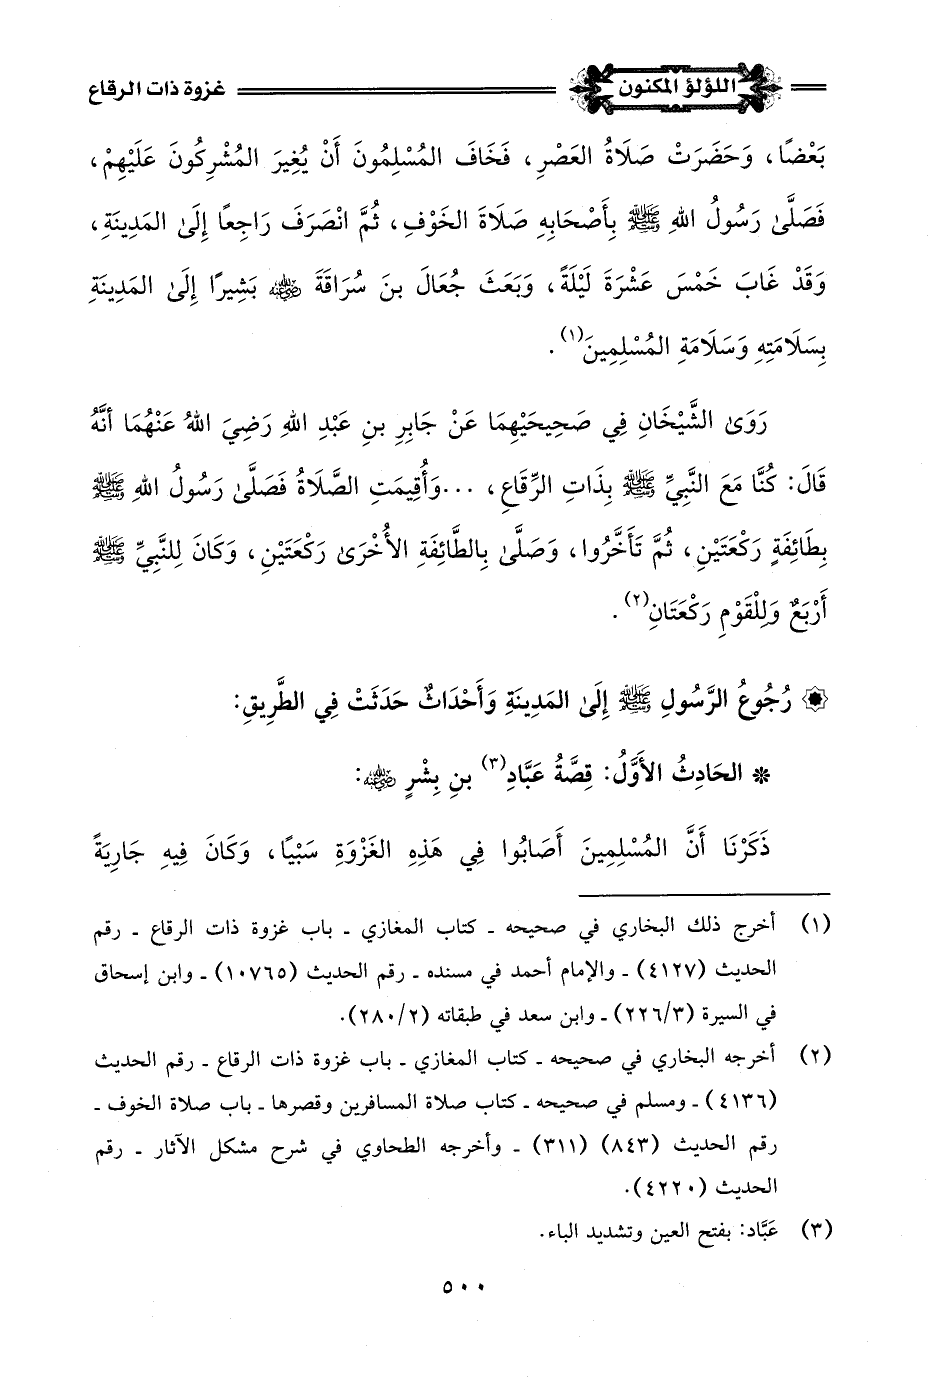 اللؤلؤ المكنون غزوة ذات الرقاع
بَعْضًا، وَحَضَرَتْ صَلَاةُ العَصْرِ، فَخَافَ المُسْلِمُونَ أَنْ يُغِيرَ المُشْرِكُونَ عَلَيْهِمْ،
فَصَلَّىٰ رَسُولُ اللهِ ﷺ بِأَصْحَابِهِ صَلَاةَ الخَوْفِ، ثُمَّ انْصَرَفَ رَاجِعًا إِلَىٰ المَدِينَةِ،
وَقَدْ غَابَ خَمْسَ عَشْرَةَ لَيْلَةً، وَبَعَثَ جُعَالَ بنَ سُرَاقَةَ رضي الله عنه بَشِيرًا إِلَىٰ المَدِينَةِ
بِسَلَامَتِهِ وَسَلَامَةِ المُسْلِمِينَ(١).
رَوَىٰ الشَّيْخَانِ فِي صَحِيحَيْهِمَا عَنْ جَابِرِ بنِ عَبْدِ اللهِ رَضِيَ اللهُ عَنْهُمَا أنَّهُ
قَالَ: كُنَّا مَعَ النَّبِيِّ ﷺ بِذَاتِ الرِّقَاعِ، ...وَأُقِيمَتِ الصَّلَاةُ فَصَلَّىٰ رَسُولُ اللهِ ﷺ
بِطَائِفَةٍ رَكْعَتَيْنِ، ثُمَّ تَأَخَّرُوا، وَصَلَّىٰ بِالطَّائِفَةِ الأُخْرَىٰ رَكْعَتَيْنِ، وَكَانَ لِلنَّبِيِّ ﷺ
أَرْبَعٌ وَلِلْقَوْمِ رَكْعَتَانِ(٢).
۞ رُجُوعُ الرَّسُولِ ﷺ إِلَىٰ المَدِينَةِ وَأَحْدَاثٌ حَدَثَتْ فِي الطَّرِيقِ:
* الحَادِثُ الأَوَّلُ: قِصَّةُ عَبَّادِ(٣) بنِ بِشْرٍ رضي الله عنه:
ذَكَرْنَا أَنَّ المُسْلِمِينَ أَصَابُوا فِي هَذِهِ الغَزْوَةِ سَبْيًا، وَكَانَ فِيهِ جَارِيَةً
(١) أخرج ذلك البخاري في صحيحه - كتاب المغازي - باب غزوة ذات الرقاع - رقم
الحديث (٤١٢٧) - والإمام أحمد في مسنده - رقم الحديث (١٠٧٦٥) - وابن إسحاق
في السيرة (٢٢٦/٣) - وابن سعد في طبقاته (٢٨٠/٢).
(٢) أخرجه البخاري في صحيحه - كتاب المغازي - باب غزوة ذات الرقاع - رقم الحديث
(٤١٣٦) - ومسلم في صحيحه - كتاب صلاة المسافرين وقصرها - باب صلاة الخوف -
رقم الحديث (٨٤٣) (٣١١) - وأخرجه الطحاوي في شرح مشكل الآثار - رقم
الحديث (٤٢٢٠).
(٣) عَبَّاد: بفتح العين وتشديد الباء.
٥٠٠